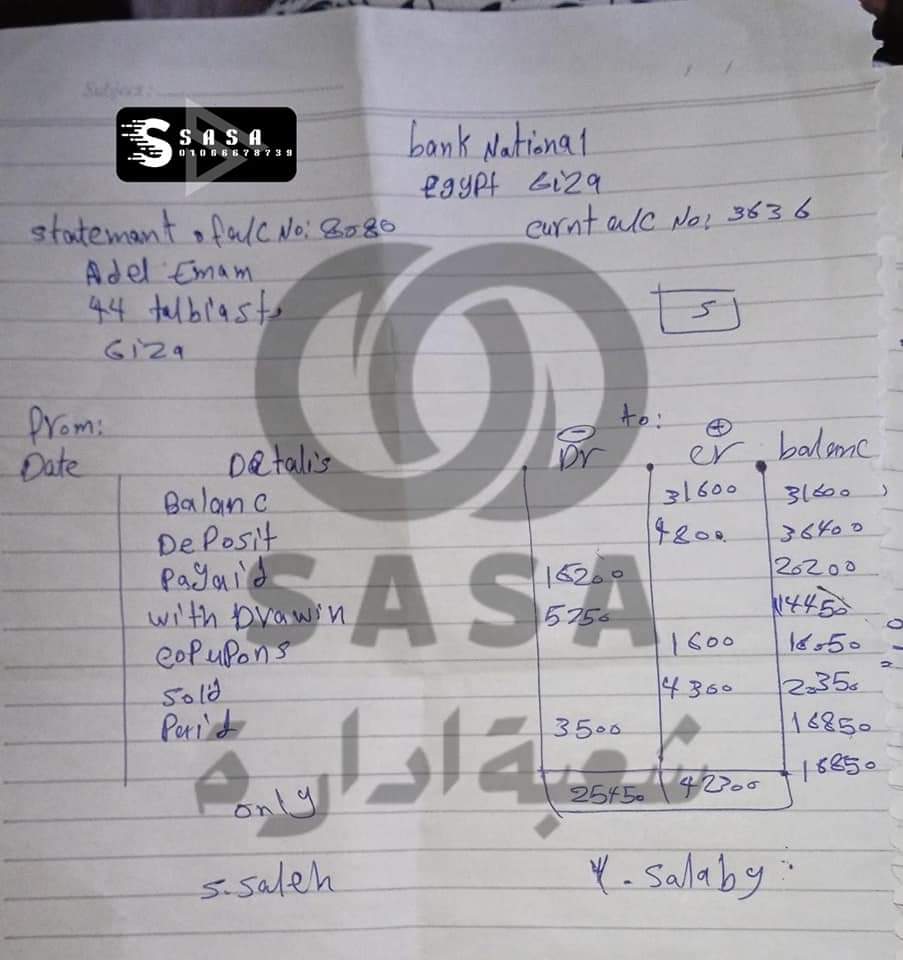 Subject:
SASA
01066678739
bank National
egypt Giza
statemant of a/c No: 8080
curnt a/c No: 3636
Adel Emam
44 talbiast
Giza
5
From:
to:
Date Detalis Dr - cr + balanc
Balanc 31600 31600
Deposit 4800 36400
Payaid 16200 20200
with Drawin 5750 14450
copupons 1600 16050
Sold 4300 20350
Paid 3500 16850
25450 42300 16850
only
s.saleh
Y. Salaby
SASA
شعبة ادارة